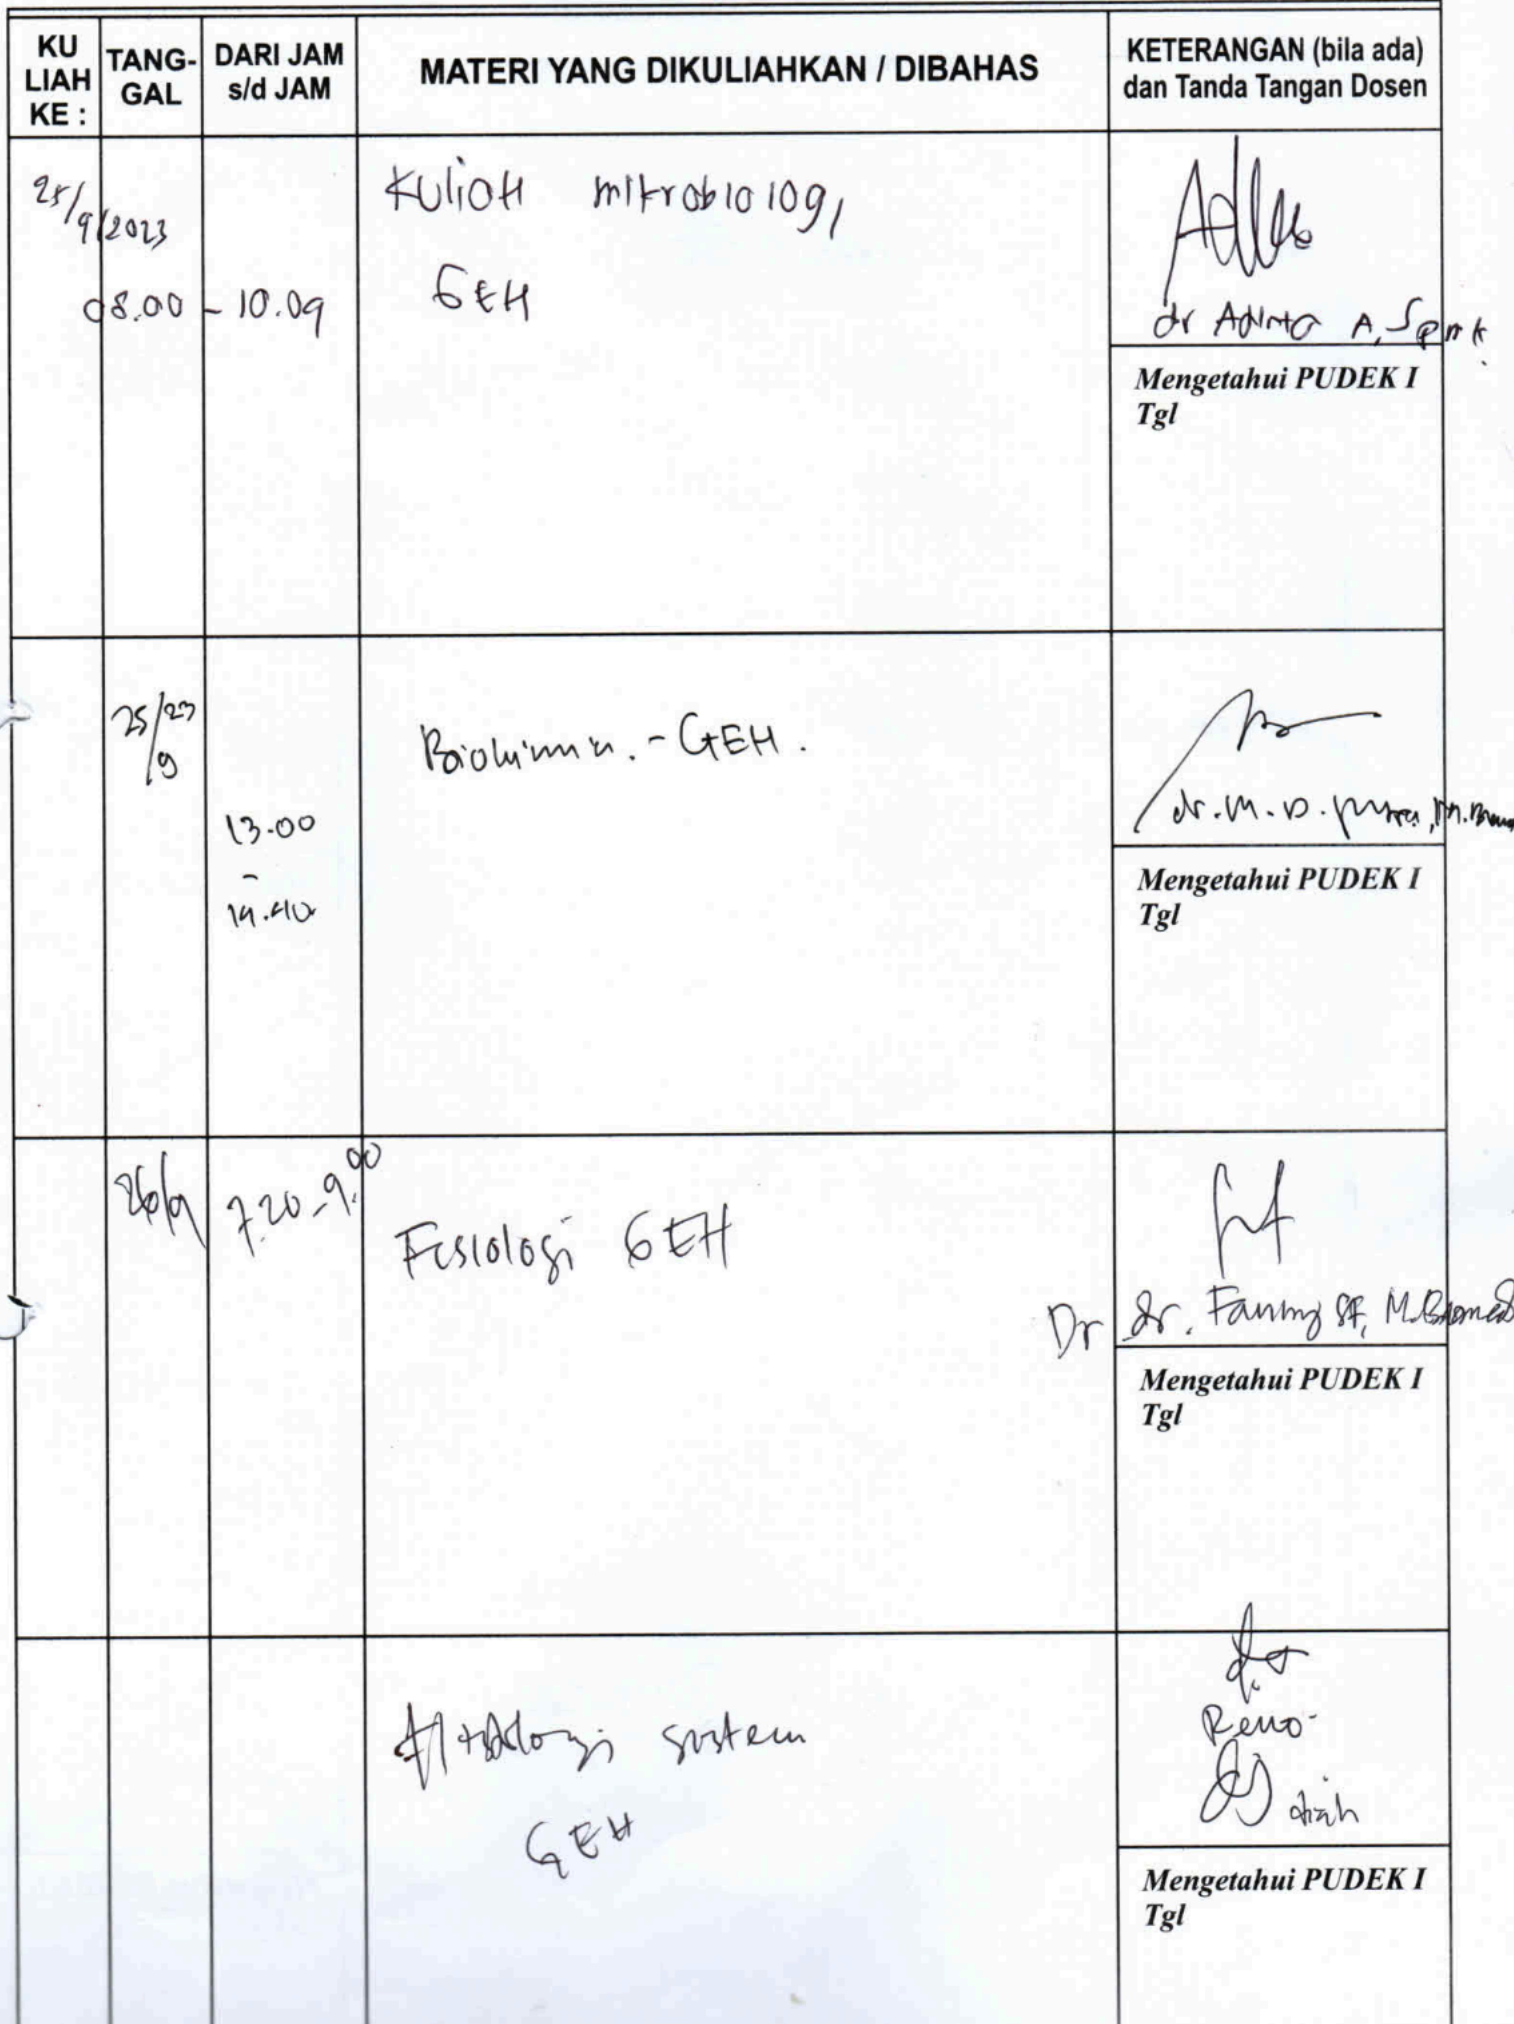 KU LIAH KE :
TANG-GAL
DARI JAM s/d JAM
MATERI YANG DIKULIAHKAN / DIBAHAS
KETERANGAN (bila ada) dan Tanda Tangan Dosen
25/9/2023
08.00 - 10.09
Kuliah mikrobiologi
GEH
A, SpMK
Mengetahui PUDEK I
Tgl
25/23
/9
13.00
-
14.40
Biokimia. - GEH.
dr. M. D. 
Mengetahui PUDEK I
Tgl
26/9
7.20 - 9.00
Fisiologi GEH
Dr dr. Fanny SF, M.Biomed
Mengetahui PUDEK I
Tgl
sistem
GEH
Reno
diah
Mengetahui PUDEK I
Tgl